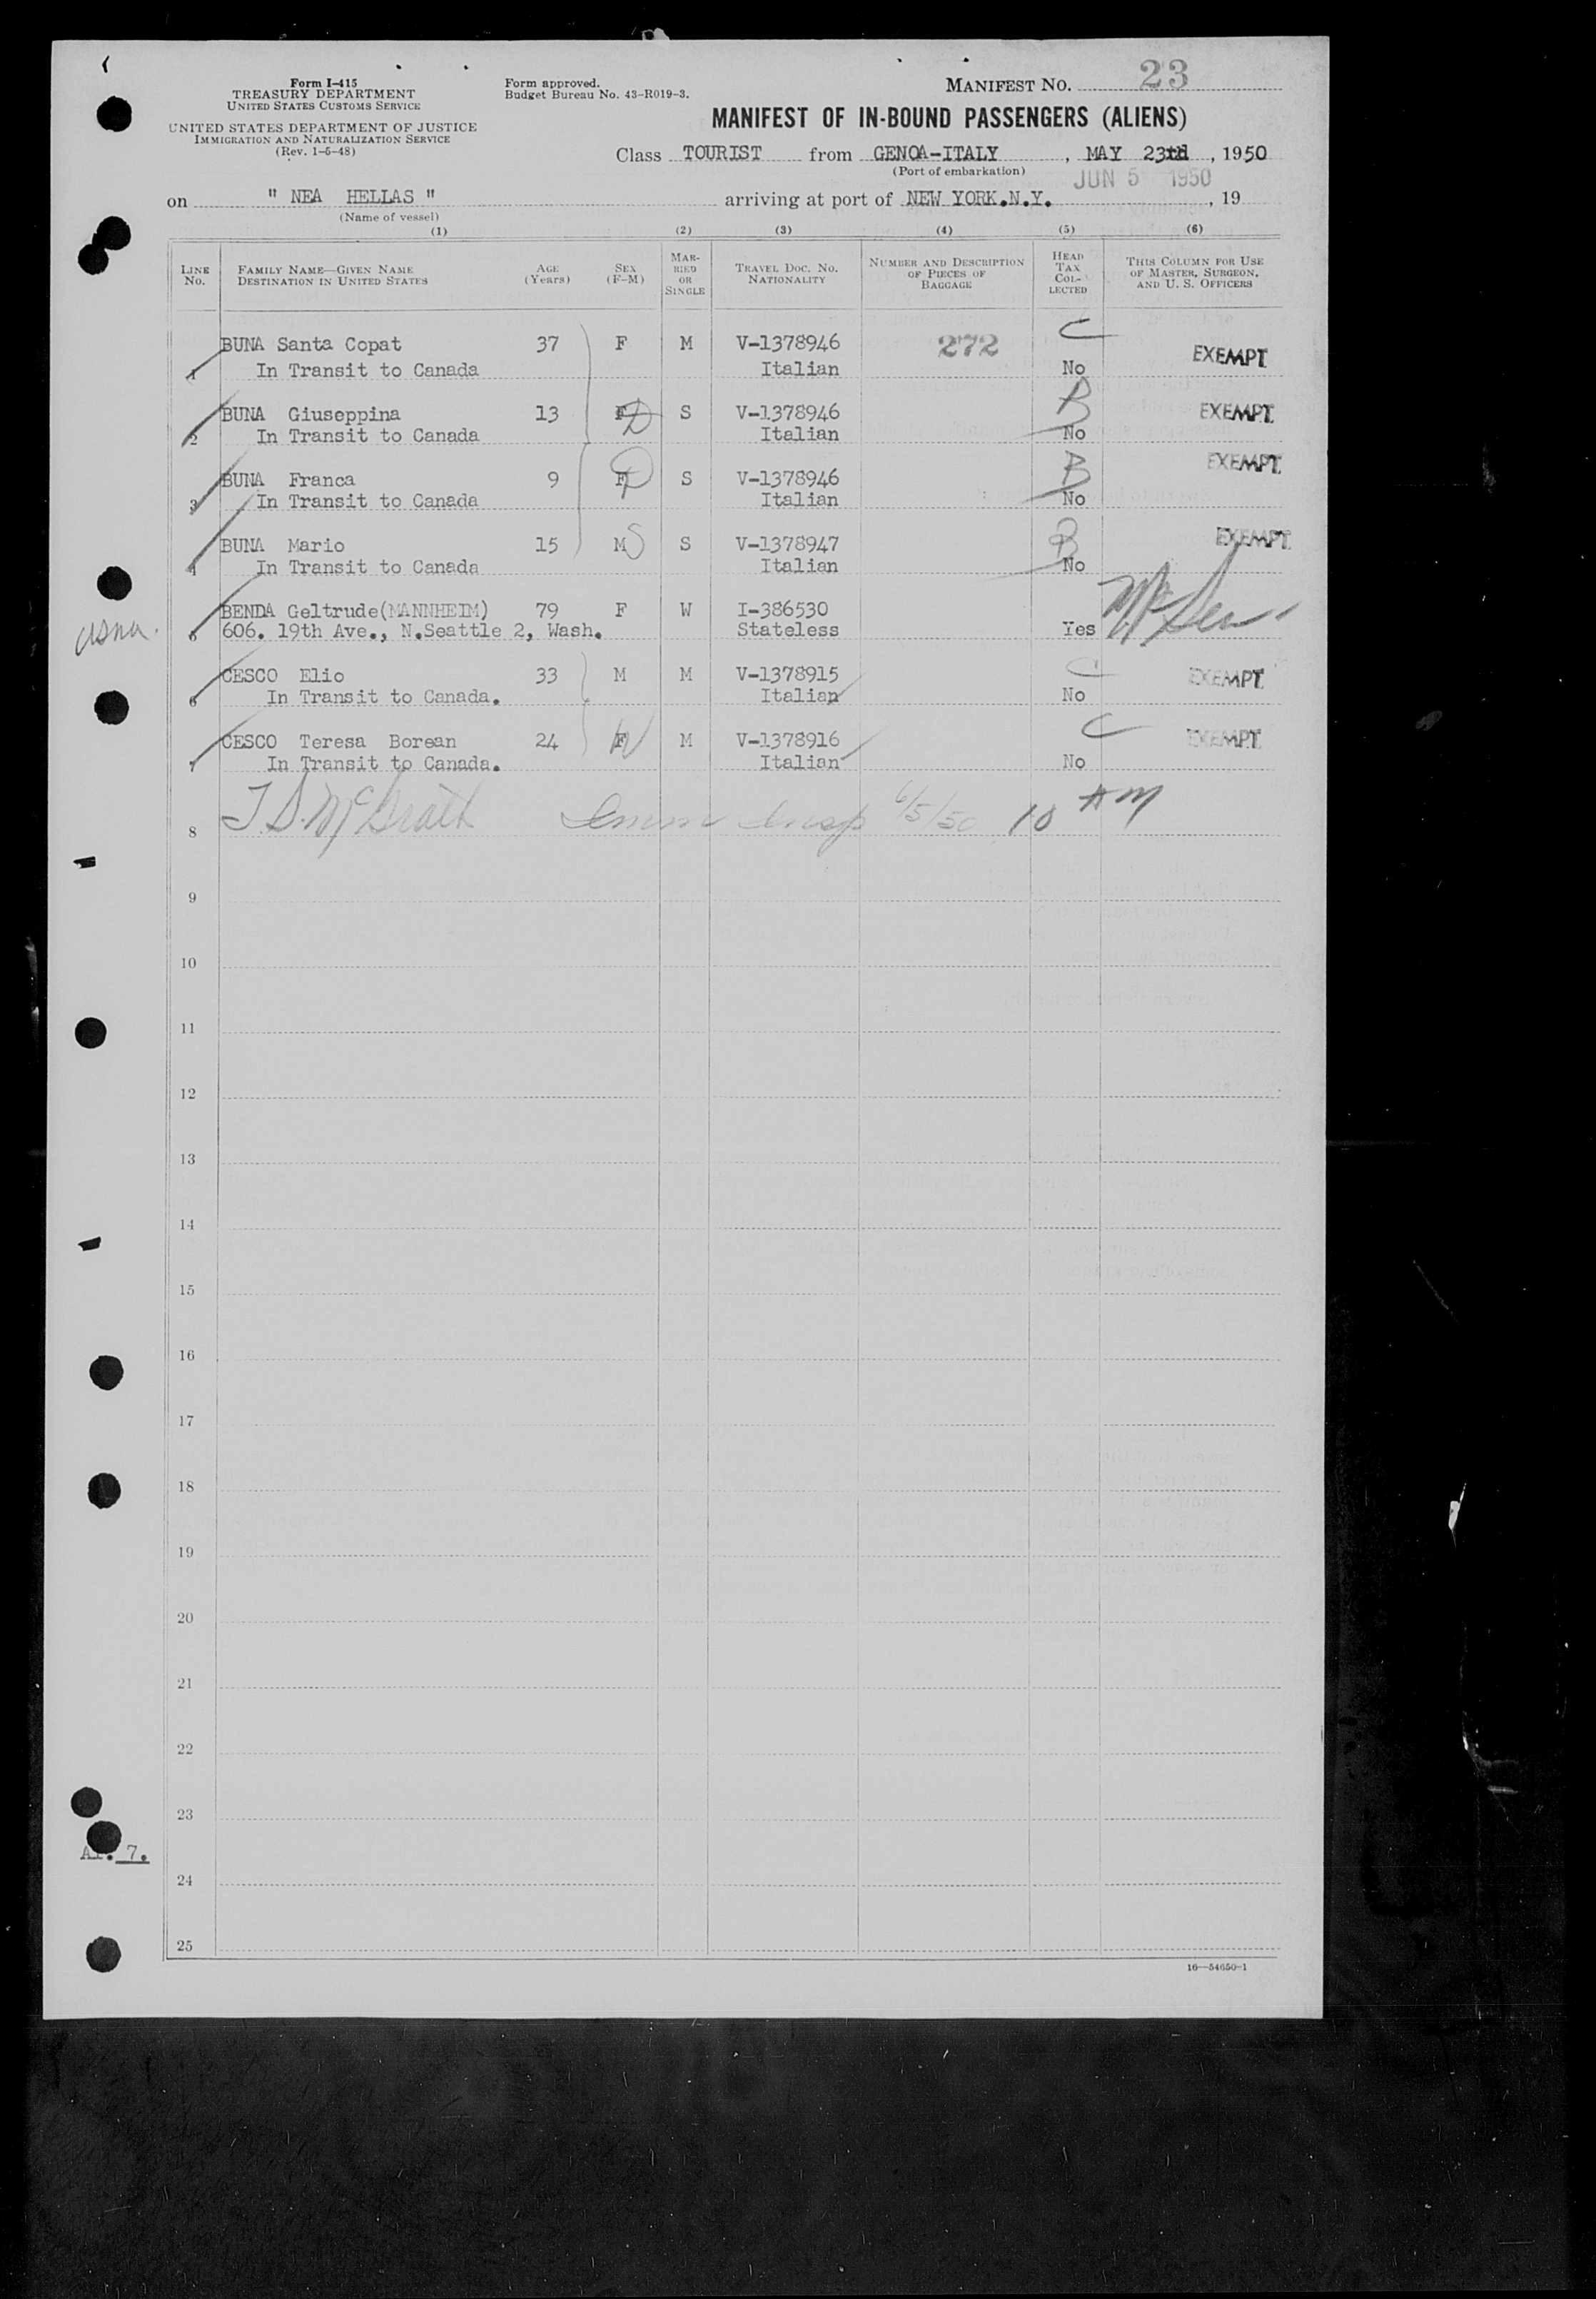 Form I-415
TREASURY DEPARTMENT
UNITED STATES CUSTOMS SERVICE
UNITED STATES DEPARTMENT OF JUSTICE
IMMIGRATION AND NATURALIZATION SERVICE
(Rev. 1-5-48)
Form approved.
Budget Bureau No. 43-R019-3.
MANIFEST NO. 23
MANIFEST OF IN-BOUND PASSENGERS (ALIENS)
Class TOURIST from GENOA-ITALY, MAY 23, 1950
(Port of embarkation)
JUN 5 1950
on " NEA HELLAS " arriving at port of NEW YORK.N.Y., 19
(Name of vessel)
(1) (2) (3) (4) (5) (6)
LINE No. FAMILY NAME—GIVEN NAME DESTINATION IN UNITED STATES AGE (Years) SEX (F-M) MARRIED OR SINGLE TRAVEL DOC. NO. NATIONALITY NUMBER AND DESCRIPTION OF PIECES OF BAGGAGE HEAD TAX COLLECTED THIS COLUMN FOR USE OF MASTER, SURGEON, AND U. S. OFFICERS
BUNA Santa Copat 37 F M V-1378946 272 C EXEMPT
1 In Transit to Canada Italian No
BUNA Giuseppina 13 F D S V-1378946 B EXEMPT
2 In Transit to Canada Italian No
BUNA Franca 9 F D S V-1378946 B EXEMPT
3 In Transit to Canada Italian No
BUNA Mario 15 M S S V-1378947 B EXEMPT
4 In Transit to Canada Italian No
BENDA Geltrude(MANNHEIM) 79 F W I-386530
606. 19th Ave., N.Seattle 2, Wash. Stateless Yes
CESCO Elio 33 M M V-1378915 C EXEMPT
6 In Transit to Canada. Italian No
CESCO Teresa Borean 24 F W M V-1378916 C EXEMPT
7 In Transit to Canada. Italian No
8 T.S. McGrath Imm Insp 6/5/50 10 AM
9
10
11
12
13
14
15
16
17
18
19
20
21
22
23
7.
24
25
16—54650-1